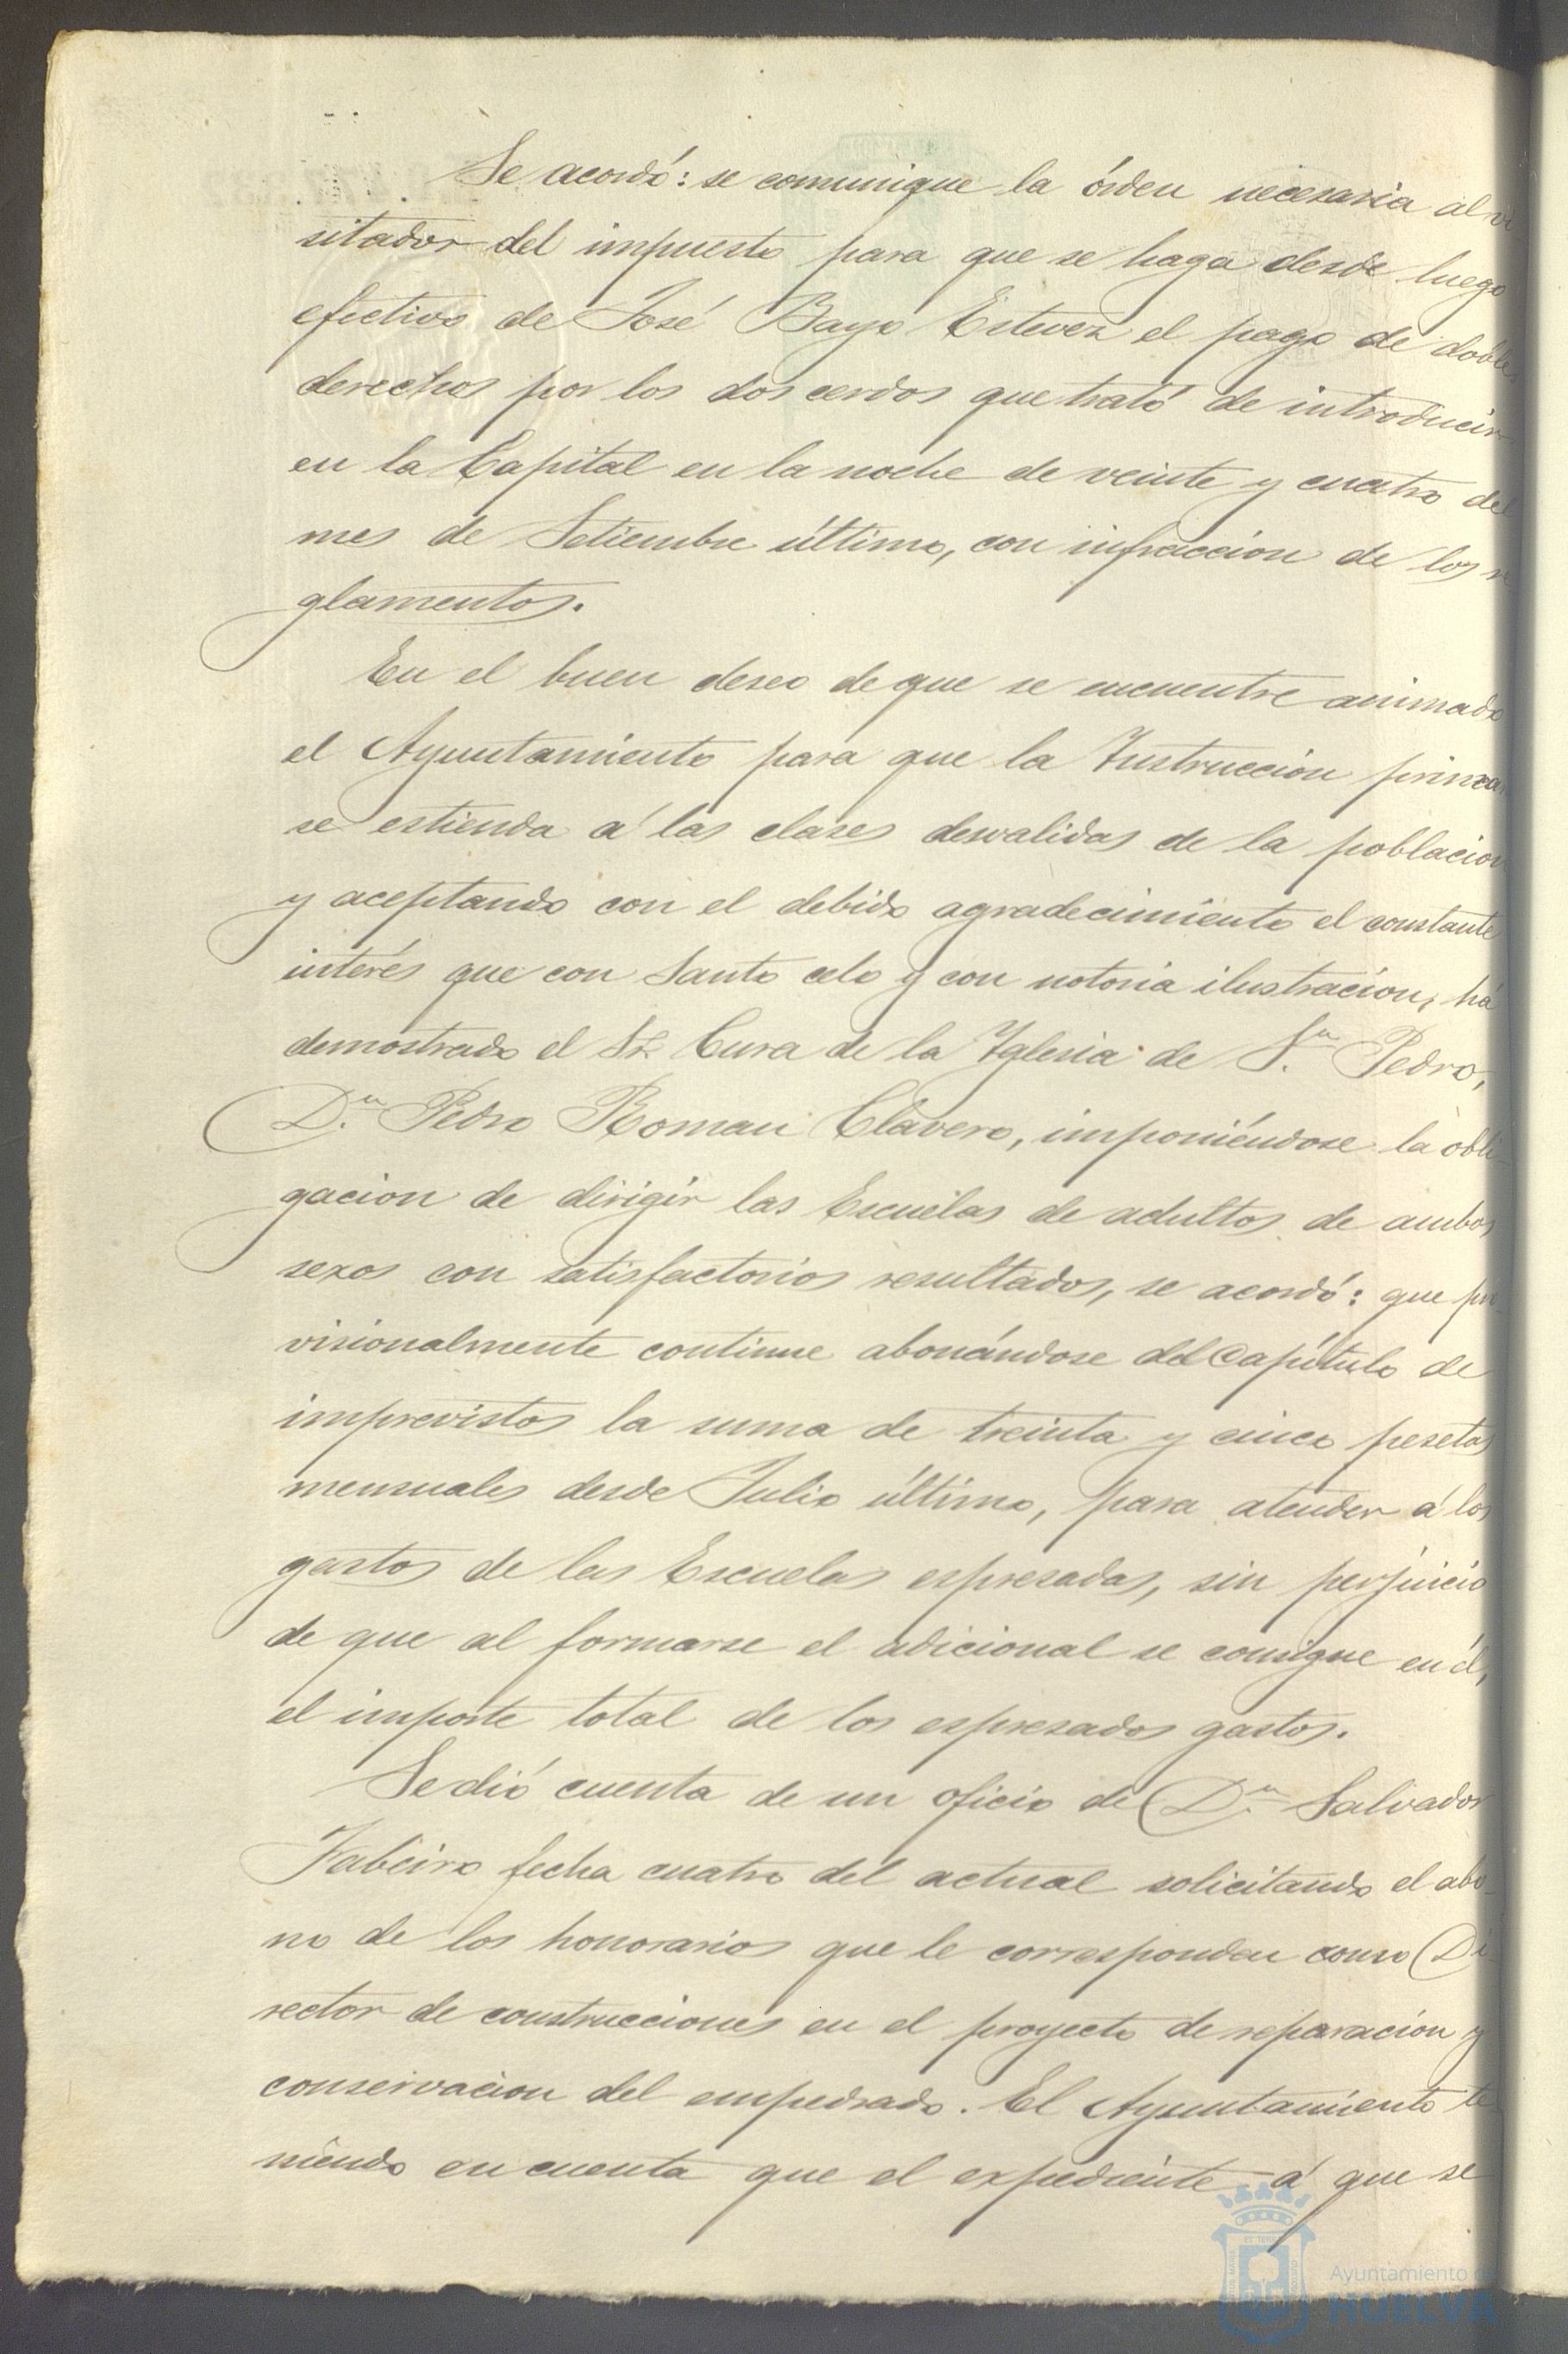 Se acordó: se comunique la órden necesaria al vi
sitador del impuesto para que se haga desde luego
efectivo de José Bayo Estevez el pago de dobles
derechos por los dos cerdos que trató de introducir
en la Capital en la noche de veinte y cuatro del
mes de Setiembre último, con infraccion de los re
glamentos.
En el buen deseo de que se encuentre animado
el Ayuntamiento para que la Instruccion primar
se estienda á las clases desvalidas de la poblacion
y aceptando con el debido agradecimiento el constante
interés que con Santo celo y con notoria ilustracion, há
demostrado el Sr. Cura de la Yglesia de S.n Pedro,
D.n Pedro Roman Clavero, imponiéndose la obli-
gacion de dirigir las Escuelas de adultos de ambos
sexos con satisfactorios resultados, se acordó: que pro-
visionalmente continue abonándose del Capítulo de
imprevistos la suma de treinta y cinco pesetas
mensuales desde Julio último, para atender á los
gastos de las Escuelas espresadas, sin perjuicio
de que al formarse el adicional se consigne en él,
el importe total de los espresados gastos.
Se dió cuenta de un oficio de D.n Salvador
Fabeiro fecha cuatro del actual solicitando el abo-
no de los honorarios que le corresponden como Di-
rector de construcciones en el proyecto de reparacion y
conservacion del empedrado. El Ayuntamiento te
niendo en cuenta que el expediente á que se
Ayuntamiento de
HUELVA